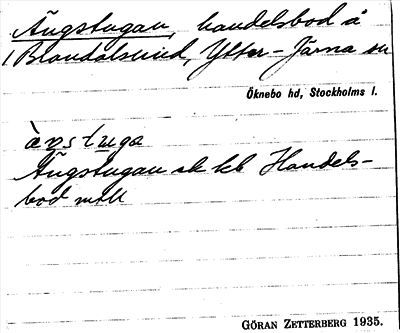 Ängstugan, handelsbod å
Brandalsund, Ytter-Järna sn
Öknebo hd, Stockholms l.
Ängstugan ek kb Handels-
bod
GÖRAN ZETTERBERG 1935.